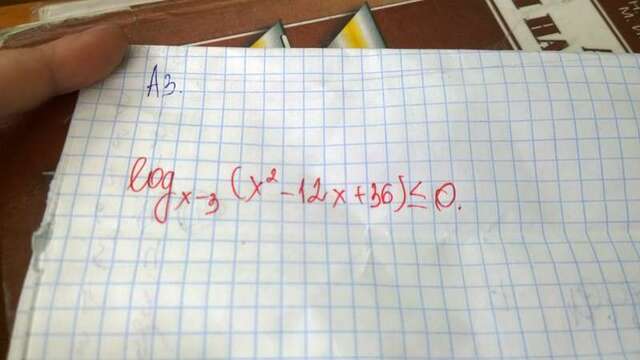 А3.
log_{x-3} (x² - 12x + 36) ≤ 0.